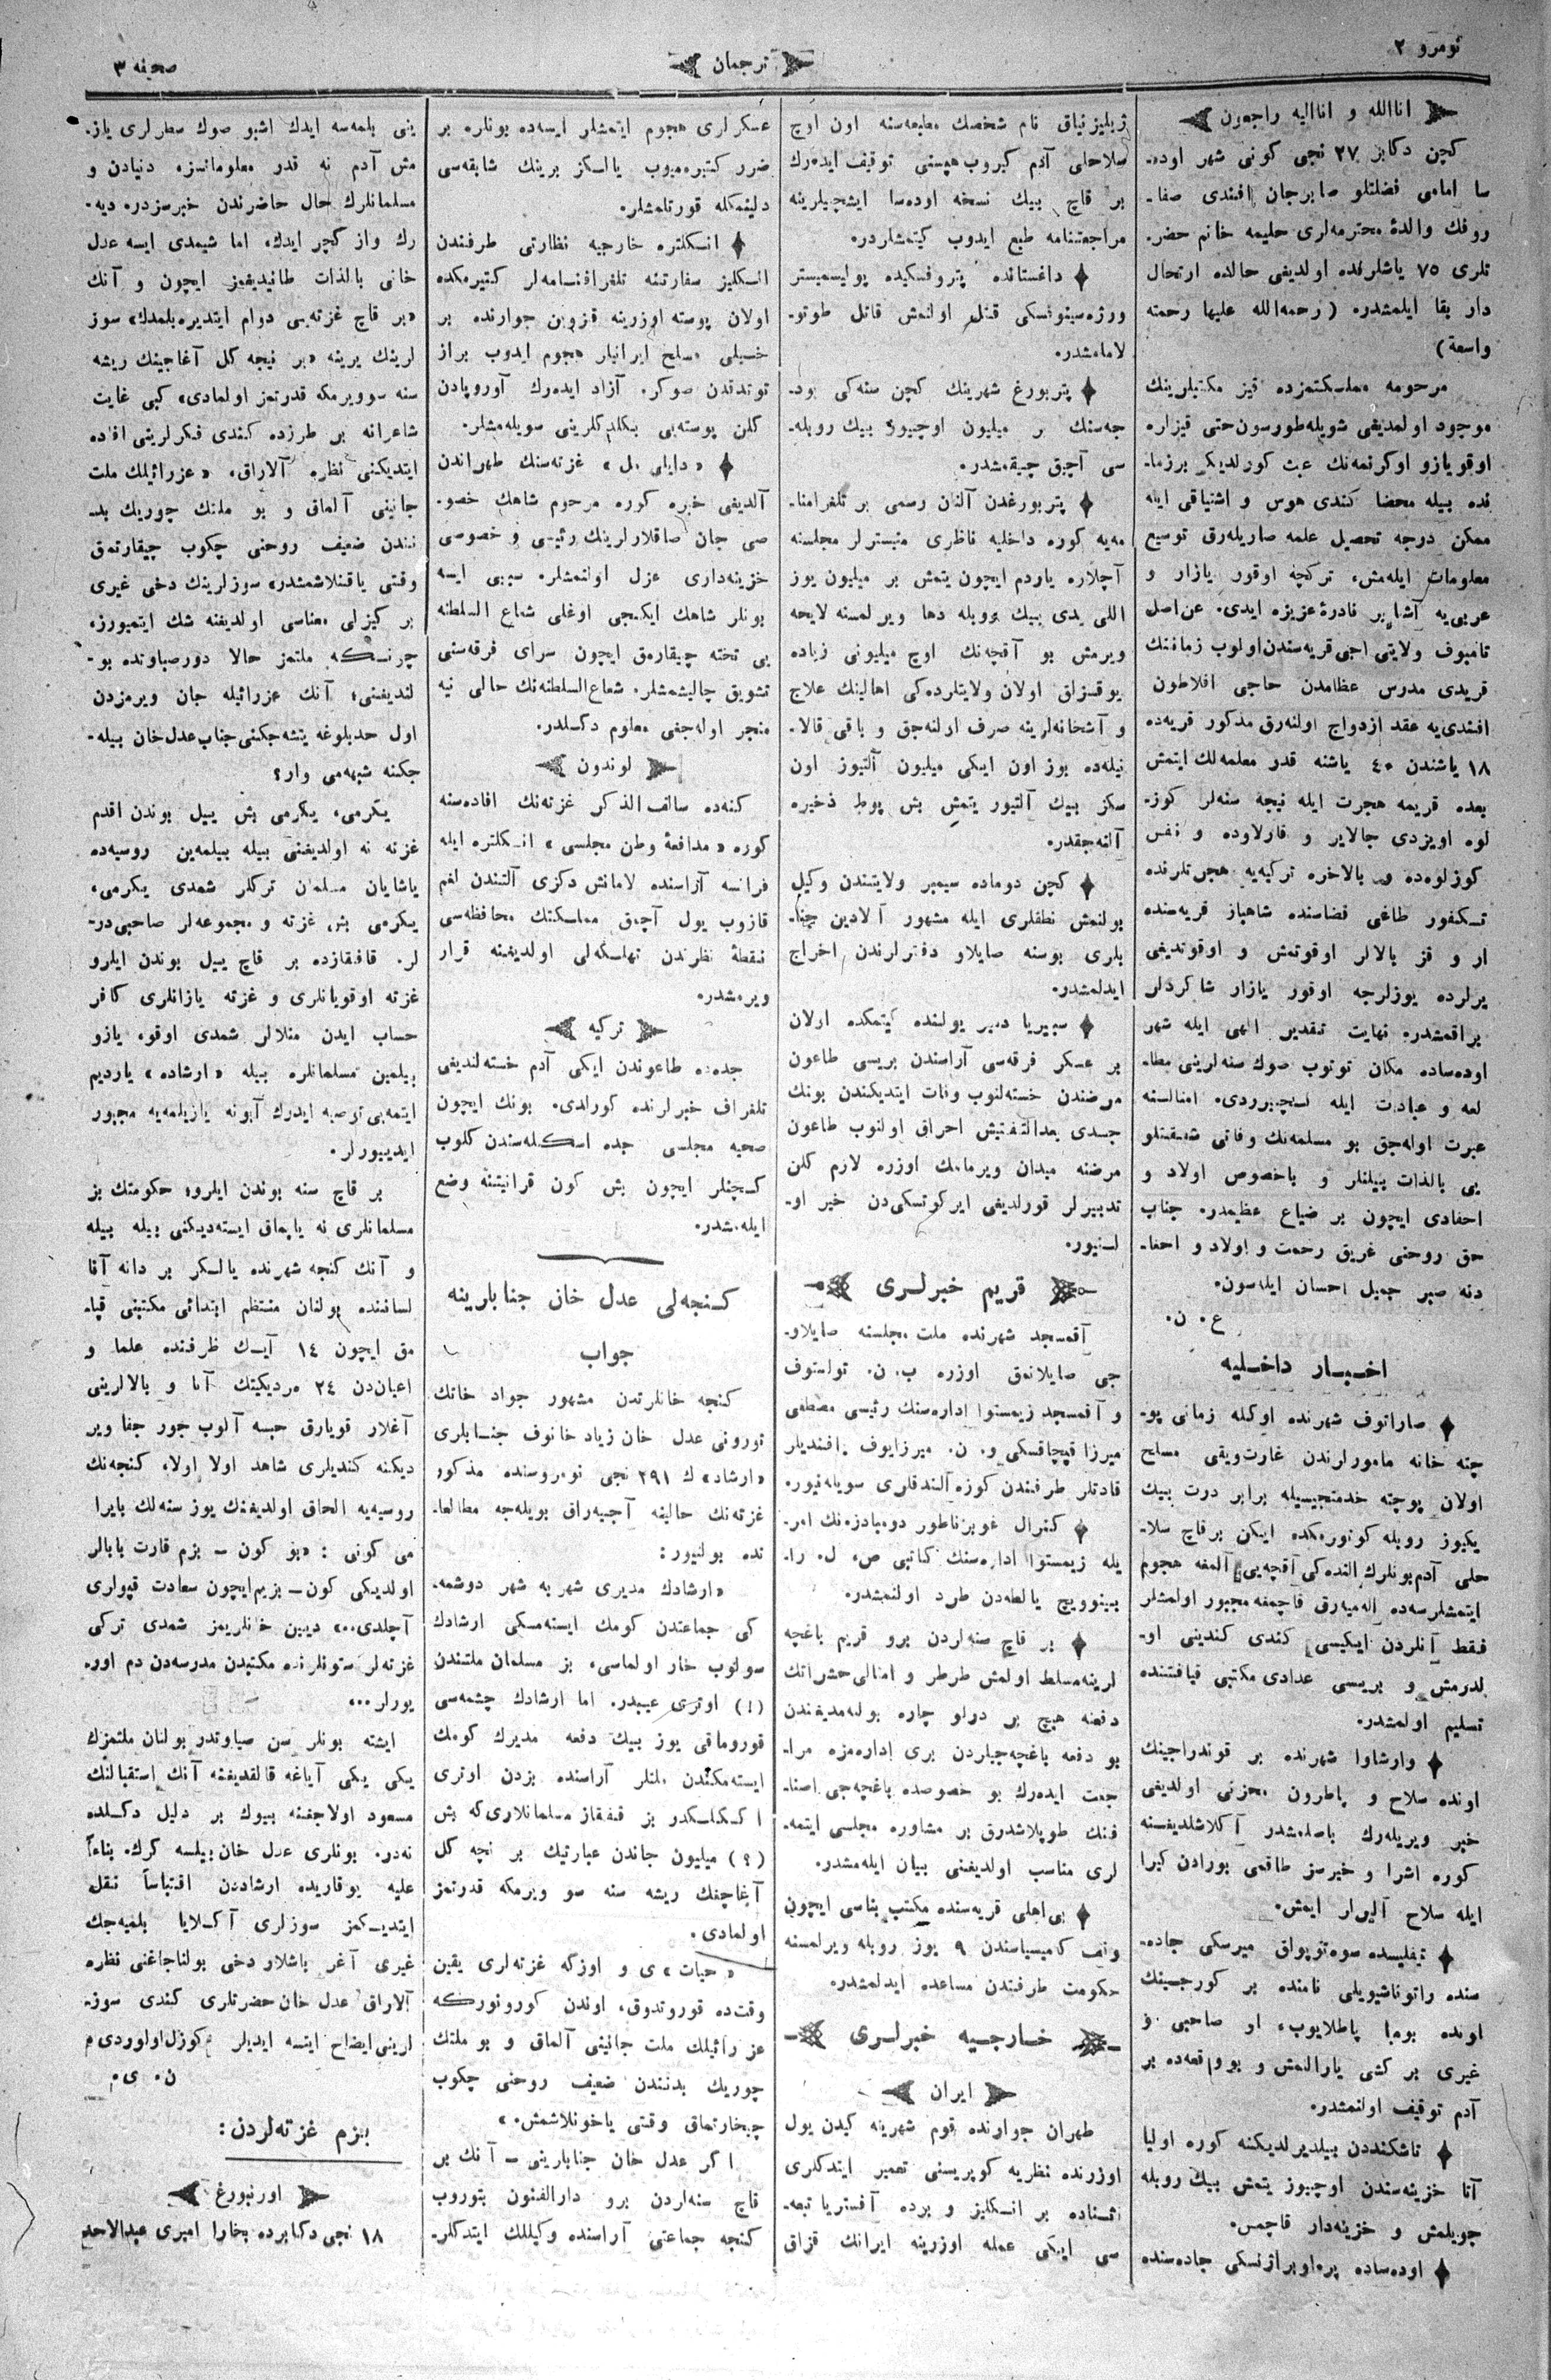 نومرو ٢
ترجمان
صحيفه ٣
انالله و انااليه راجعون
كچن دكابر ٢٧ نجى كونى شهر اوده‌-
سا امامى فضلتلو صابرجان افندى صفا-
روفك والدۀ محترمه‌لرى حليمه خانم حضر-
تلرى ٧٥ ياشلرنده اولديغى حالده ارتحال
دار بقا ايلمشدر. (رحمه‌الله عليها رحمته
واسعة)
مرحومه مملسكتمزده قيز مكتبلرينك
موجود اولمديغى شويله‌طورسون‌حتى قيزلره
اوقويازو اوكرتمه‌نك عيب كورلديكى برزما-
نده بيله محضا كندى هوس و اشتياقى ايله
ممكن درجه تحصيل علمه صاريله‌رق توسيع
معلومات ايله‌مش، تركچه اوقور يازار و
عربى‌يه آشنا بر نادرۀ عزيزه ايدى. عن‌اصل
تامبوف ولايتى اجى قريه‌سندن‌اولوب زماننك
قريدى مدرس عظامدن حاجى افلاطون
افندى‌يه عقد ازدواج اولنه‌رق مذكور قريه‌ده
١٨ ياشندن ٤٠ ياشنه قدر معلمه‌لك ايتمش
بعده قريمه هجرت ايله نيچه سنه‌لر كوز-
لوه اويزدى جالاير و قارلاوده و نفس
كوزلوه‌ده و بالاخره تركيه‌يه هجرتلرنده
تسكفور طاغى قضاسنده شاهباز قريه‌سنده
ار و قز بالالر اوقوتمش و اوقوتديغى
يرلرده يوزلرجه اوقور يازار شاكردلر
براقمشدر. نهايت تقدير الهى ايله شهر
اوده‌ساده مكان توتوب صوك سنه‌لرينى مطا-
لعه و عبادت ايله كچيرردى. امثالسنه
عبرت اوله‌جق بو مسلمه‌نك وفاتى شفقتلو
يى بالذات بيلنلر و باخصوص اولاد و
احفادى ايچون بر ضياع عظيمدر. جناب
حق روحنى غريق رحمت و اولاد و احفا-
دنه صبر جميل احسان ايله‌سون.
ع. ن.
اخبار داخليه
صاراتوف شهرنده اوكله زمانى پو-
چته خانه مامورلرندن غارت‌ويقى مسلح
اولان پوچته خدمتجيسيله برابر درت بيك
يكيوز روبله كوتورمكده ايكن برقاچ سلا-
حلى آدم‌بونلرك الندەكى آقچه‌يى آلمغه هجوم
ايتمشلرسه‌ده اله‌ميه‌رق قاچمغه‌مجبور اولمشلر
فقط آنلردن ايكيسى كندى كندينى او-
لدرمش و بريسى عدادى مكتبى قيافتنده
تسليم اولمشدر.
وارشاوا شهرنده بر قوندراجينك
اونده سلاح و پاطرون مخزنى اولديغى
خبر ويريله‌رك باصلمشدر آكلاشلديغسنه
كوره اشرا و خيرسز طاقمى بورادن كيرا
ايله سلاح آليرلر ايمش.
تيفليسده سوه‌تويواق ميرسكى جاده-
سنده راتوناشيويلى نامنده بر كورجينك
اونده بومبا پاطلايوب، او صاحبى و
غيرى بر كشى يارالنمش و بوواقعه‌ده بر
آدم توقيف اولنمشدر.
تاشكنددن بيلديرلديكنه كوره اوليا
آتا خزينه‌سندن اوچيوز يتمش بيك روبله
جويلمش و خزينه‌دار قاچمس.
اوده‌ساده پره‌اوبراژنسكى جاده‌سنده
ژبليزنياق نام شخصك مطبعه‌سنه اون اوچ
سلاحلى آدم كيروب هپسنى توقيف ايده‌رك
بر قاچ بيك نسخه اوده‌سا ايشچيلرينه
مراجعتنامه طبع ايدوب كيتمشلردر.
داغستانده پتروفسكيده پوليسميستر
ورژه‌سينوفسكى قتل اولنمش قاتل طوتو-
لامامشدر.
پتربورغ شهرينك كچن سنه‌كى بود-
جه‌سنك بر ميليون اوچيوز بيك روبله-
سى آچيق چيقمشدر.
پتربورغدن آلنان رسمى بر تلغرامنا-
مه‌يه كوره داخليه ناظرى منيسترلر مجلسنه
آچلاره ياردم ايچون يتمش بر ميليون يوز
اللى يدى بيك روبله دها ويرلمسنه لايحه
ويرمش بو آقچه‌نك اوچ ميليونى زياده
يوقسزلق اولان ولايتلرده‌كى اهالينك علاج
و آشخانه‌لرينه صرف اولنه‌جق و باقى قالا-
نيله‌ده يوز اون ايكى ميليون آلتيوز اون
سكز بيك آلتيوز يتمش بش پوط ذخيره
آلنه‌جقدر.
كچن دوماده سيمبر ولايتندن وكيل
بولنمش نطقلرى ايله مشهور آلادين جنا-
بلرى بوسنه صايلاو دفترلرندن اخراج
ايدلمشدر.
سيبريا دمير يولنده كيتمكده اولان
بر عسكر فرقه‌سى آراسندن بريسى طاعون
مرضندن خسته‌لنوب وفات ايتديكندن بونك
جسدى بعدالتفتيش احراق اولنوب طاعون
مرضنه ميدان ويرمامك اوزره لازم كلن
تدبيرلر قورلديغى ايركوتسكى‌دن خبر او-
لنيور.
قريم خبرلرى
آقمسجد شهرنده ملت مجلسنه صايلاو-
جى صايلانمق اوزره ب. ن. تولستوف
و آقمسجد زيمستوا اداره‌سنك رئيسى مصطفى
ميرزا قپچاقسكى و. ن. ميرزايوف افنديلر
قادتلر طرفندن كوزه آلندقلرى سويله‌نيور.
كنرال غوبرناطور دومبادزه‌نك امر-
يله زيمستوا اداره‌سنك كاتبى ص. ل. را-
بينوويچ يالطه‌دن طرد اولنمشدر.
بر قاچ سنه‌لردن برو قريم باغچه
لرينه‌مسلط اولمش طرطر و امثالى حشراتك
دفعنه هيچ بر درلو چاره بولنه‌مديغندن
بو دفعه باغچه‌جيلردن برى اداره‌مزه مرا-
جعت ايده‌رك بو خصوصده باغچه‌جى اصنا-
فنك طوپلاشدرق بر مشاوره مجلسى ايتمه-
لرى مناسب اولديغنى بيان ايله‌مشدر.
بى‌اهلى قريه‌سنده مكتب بناسى ايچون
وقف كاميسياسندن ٩ يوز روبله ويرلمسنه
حكومت طرفندن مساعده ايدلمشدر.
خارجيه خبرلرى
ايران
طهران جوارنده قوم شهرينه كيدن يول
اوزرنده نظريه كوپريسنى تعمير ايتدكلرى
اثناده بر انسكليز و برده آفستريا تبعه-
سى ايكى عمله اوزرينه ايرانك قزاق
عسكرلرى هجوم ايتمشلر ايسه‌ده بونلره بر
ضرر كتيره‌ميوب يالسكز برينك شابقه‌سى
دلينمكله قورتلمشلر.
انسكلتره خارجيه نظارتى طرفندن
انسكليز سفارتنه تلغرافنامه‌لر كتيرمكده
اولان پوسته اوزرينه قزوين جوارنده بر
خيلى مسلح ايرانيلر هجوم ايدوب براز
توتدقدن صوكره آزاد ايده‌رك آوروپادن
كلن پوسته‌يى بكله‌دكلرينى سويله‌مشلر.
«دايلى مل» غزته‌سنك طهراندن
آلديغى خبره كوره مرحوم شاهك خصو-
صى جان صاقلارلرينك رئيسى و خصوصى
خزينه‌دارى عزل اولنمشلر. سببى ايسه
بونلر شاهك ايكنجى اوغلى شعاع السلطنه
يى تخته چيقارمق ايچون سراى فرقه‌سنى
تشويق چاليشمشلر. شعاع‌السلطنه‌نك حالى نيه
منجر اوله‌جغى معلوم دكلدر.
لوندون
كنه‌ده سالف‌الذكر غزته‌نك افاده‌سنه
كوره «مدافعۀ وطن مجلسى» انسكلتره ايله
فرانسه آراسنده لامانش دكزى آلتندن لغم
قازوب يول آچمق مملسكتك محافظه‌سى
نقطۀ نظرندن تهلسكه‌لى اولديغينه قرار
ويرمشدر.
تركيه
جده‌ده طاعوندن ايكى آدم خسته‌لنديغى
تلغراف خبرلرنده كورلدى. بونك ايچون
صحيه مجلسى جده اسكله‌سندن كلوب
كچنلر ايچون بش كون قرانيتنه وضع
ايله‌مشدر.
كنجه‌لى عدل خان جنابارينه
جواب
كنجه خانلرندن مشهور جواد خانك
تورونى عدل خان زياد خانوف جنابلرى
«ارشاد» ك ٢٩١ نجى نومروسنده مذكور
غزته‌نك حالينه آجييه‌راق بويله‌جه مطالعا-
تده بولنيور:
«ارشادك مديرى شهر به شهر دوشمه-
كى جماعتدن كومك ايسته‌مسكى ارشادك
سولنوب خار اولماسى، بز مسلمان ملتندن
(!) اوترى عيبدر. اما ارشادك چشمه‌سى
قوروماقى يوز بيك دفعه مديرك كومك
ايسته‌مكندن ملتلر آراسنده بزدن اوترى
اكسكلسكدر بز قفقاز مسلمانلارى‌كه بش
(؟) ميليون جاندن عبارتيك بر نچه كل
آغاچنك ريشه سنه سو ويرمكه قدرتمز
اولمادى.
«حيات» ى و اوزكه غزته‌لرى يقين
وقت‌ده قوروتدوق، اوندن كورونوركه
عزرائيلك ملت جانينى آلماق و بو ملتك
چوريك بدنندن ضعيف روحنى چكوب
چيخارتماق وقتى ياخونلاشمش.»
اكر عدل خان جنابارينى - آنك بر
قاچ سنه‌لردن برو دارالفنون بتوروب
كنجه جماعتى آراسنده وكيللك ايتدكلر-
ينى بلمه‌سه ايدك اشبو صوك سطرلرى ياز-
مش آدم نه قدر معلوماتسزه دنيادن و
مسلمانلرك حال حاضرندن خبرسزدره ديه-
رك واز كچر ايدك، اما شيمدى ايسه عدل
خانى بالذات طانيديغمز ايچون و آنك
«بر قاچ غزته‌يى دوام ايتديره‌بلمدك» سوز
لرينك يرينه «بر نيچه كل آغاجينك ريشه
سنه سوويرمكه قدرتمز اولمادى» كبى غايت
شاعرانه بر طرزده كندى فكرلرينى افاده
ايتديكنى نظره آلاراق، «عزرائيلك ملت
جانينى آلماق و بو ملتك چوريك بد-
نندن ضعيف روحنى چكوب چيقارتمق
وقتى ياقنلاشمشدر» سوزلرينك دخى غيرى
بر كيزلى معناسى اولديغنه شك ايتميورز.
چونسكه ملتمز حالا دورصباوتده بو-
لنديغنى؛ آنك عزرائيله جان ويرمزدن
اول حدبلوغه يتشه‌جكنى‌جناب‌عدل‌خان بيله-
جكنه شبهه‌مى وار؟
يكرمى، يكرمى بش ييل بوندن اقدم
غزته نه اولديغنى بيله بيلمه‌ين روسيه‌ده
ياشايان مسلمان تركلر شمدى يكرمى،
يكرمى بش غزته و مجموعه‌لر صاحبى‌در-
لر. قافقازده بر قاچ ييل بوندن ايلرو
غزته اوقويانلرى و غزته يازانلرى كافر
حساب ايدن منلالر شمدى اوقو، يازو
بيلمين مسلمانلره بيله «ارشاده» يارديم
ايتمه‌يى توصيه ايدرك آبونه يازيلمه‌يه مجبور
ايدييورلر.
بر قاچ سنه بوندن ايلرو، حكومتك بز
مسلمانلرى نه ياپماق ايسته‌ديكنى بيله بيله
و آنك كنجه شهرنده يالسكز بر دانه آنا
لساننده بولنان منتظم ابتدائى مكتبنى قپا-
مق ايچون ١٤ آيك ظرفنده علما و
اعيان‌دن ٢٤ مرديكينك آنا و بالالرينى
آغلار قويارق حبسه آلوب جور جفا وير
ديكنه كنديلرى شاهد اولا اولا، كنجه‌نك
روسيه‌يه الحاق اولديغنك يوز سنه‌لك بايرا
مى كونى: «بو كون - بزم قارت بابالر
اولديكى كون - بزيم‌ايچون سعادت قپولرى
آچلدى..» ديين خانلريمز شمدى تركى
غزته‌لر ستونلرنده مكتبدن مدرسه‌دن دم اور-
يورلر...
ايشته بونلر سن صباوتدز بولنان ملتمزك
يكى يكى آياغه قالقديغنه آنك استقبالنك
مسعود اولاجغنه بيوك بر دليل دكلده
نه‌در. بونلرى عدل خان بيلسه كرك. بناءً
عليه يوقاريده ارشاددن اقتباساً نقل
ايتديكمز سوزلرى آكلايا بلميه‌جك
غيرى آغر باشلار دخى بولناجاغنى نظره
آلاراق عدل خان حضرتلرى كندى سوز-
لرينى ايضاح ايتسه ايديلر كوزل‌اولوردى.
ن. ى.
بزم غزته‌لردن:
اورنبورغ
١٨ نجى دكابرده بخارا اميرى عبدالاحد